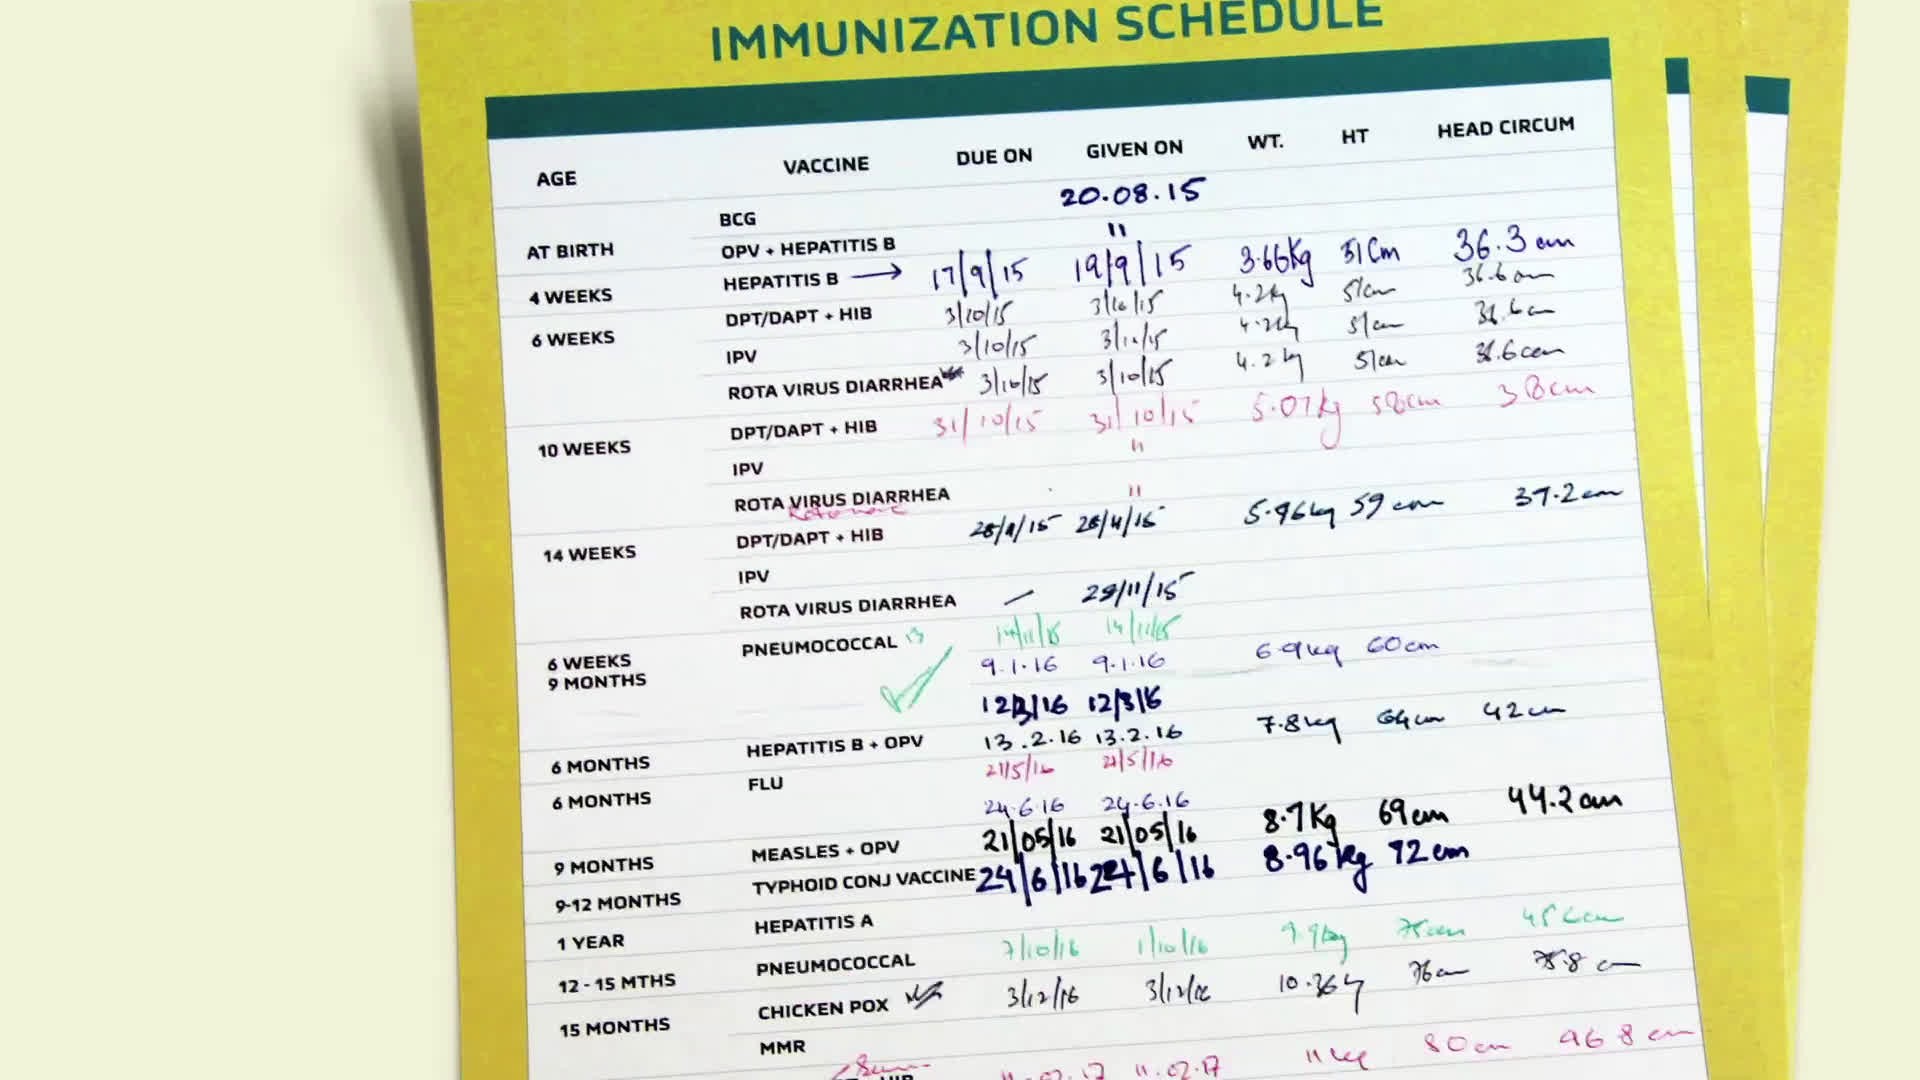 IMMUNIZATION SCHEDULE
AGE VACCINE DUE ON GIVEN ON WT. HT HEAD CIRCUM
BCG 20.08.15
AT BIRTH OPV + HEPATITIS B "
4 WEEKS HEPATITIS B → 17/9/15 19/9/15 3.66Kg 51Cm 36.3 cm
6 WEEKS DPT/DAPT + HIB 3/10/15 3/10/15 4.2kg 51cm 36.6 cm
IPV 3/10/15 3/10/15 4.2kg 51cm 36.6 cm
ROTA VIRUS DIARRHEA 3/10/15 3/10/15 4.2 kg 51cm 36.6cm
10 WEEKS DPT/DAPT + HIB 31/10/15 31/10/15 5.07kg 58cm 38cm
IPV "
ROTA VIRUS DIARRHEA "
14 WEEKS DPT/DAPT + HIB 28/11/15 28/11/15 5.96kg 59 cm 37.2 cm
IPV
ROTA VIRUS DIARRHEA 29/11/15
6 WEEKS PNEUMOCOCCAL 13 14/11/15 14/11/15
9 MONTHS 9.1.16 9.1.16 6.9kg 60cm
12/3/16 12/3/16
6 MONTHS HEPATITIS B + OPV 13.2.16 13.2.16 7.8kg 64cm 42cm
6 MONTHS FLU 21/5/16 21/5/16
24.6.16 24.6.16
9 MONTHS MEASLES + OPV 21/05/16 21/05/16 8.7Kg 69cm 44.2cm
9-12 MONTHS TYPHOID CONJ VACCINE 24/6/16 24/6/16 8.96kg 72cm
1 YEAR HEPATITIS A
12 - 15 MTHS PNEUMOCOCCAL 7/10/16 1/10/16 9.9kg 75cm
15 MONTHS CHICKEN POX 3/12/16 3/12/16 76cm
MMR
11.02.17 11.02.17 11kg 80cm